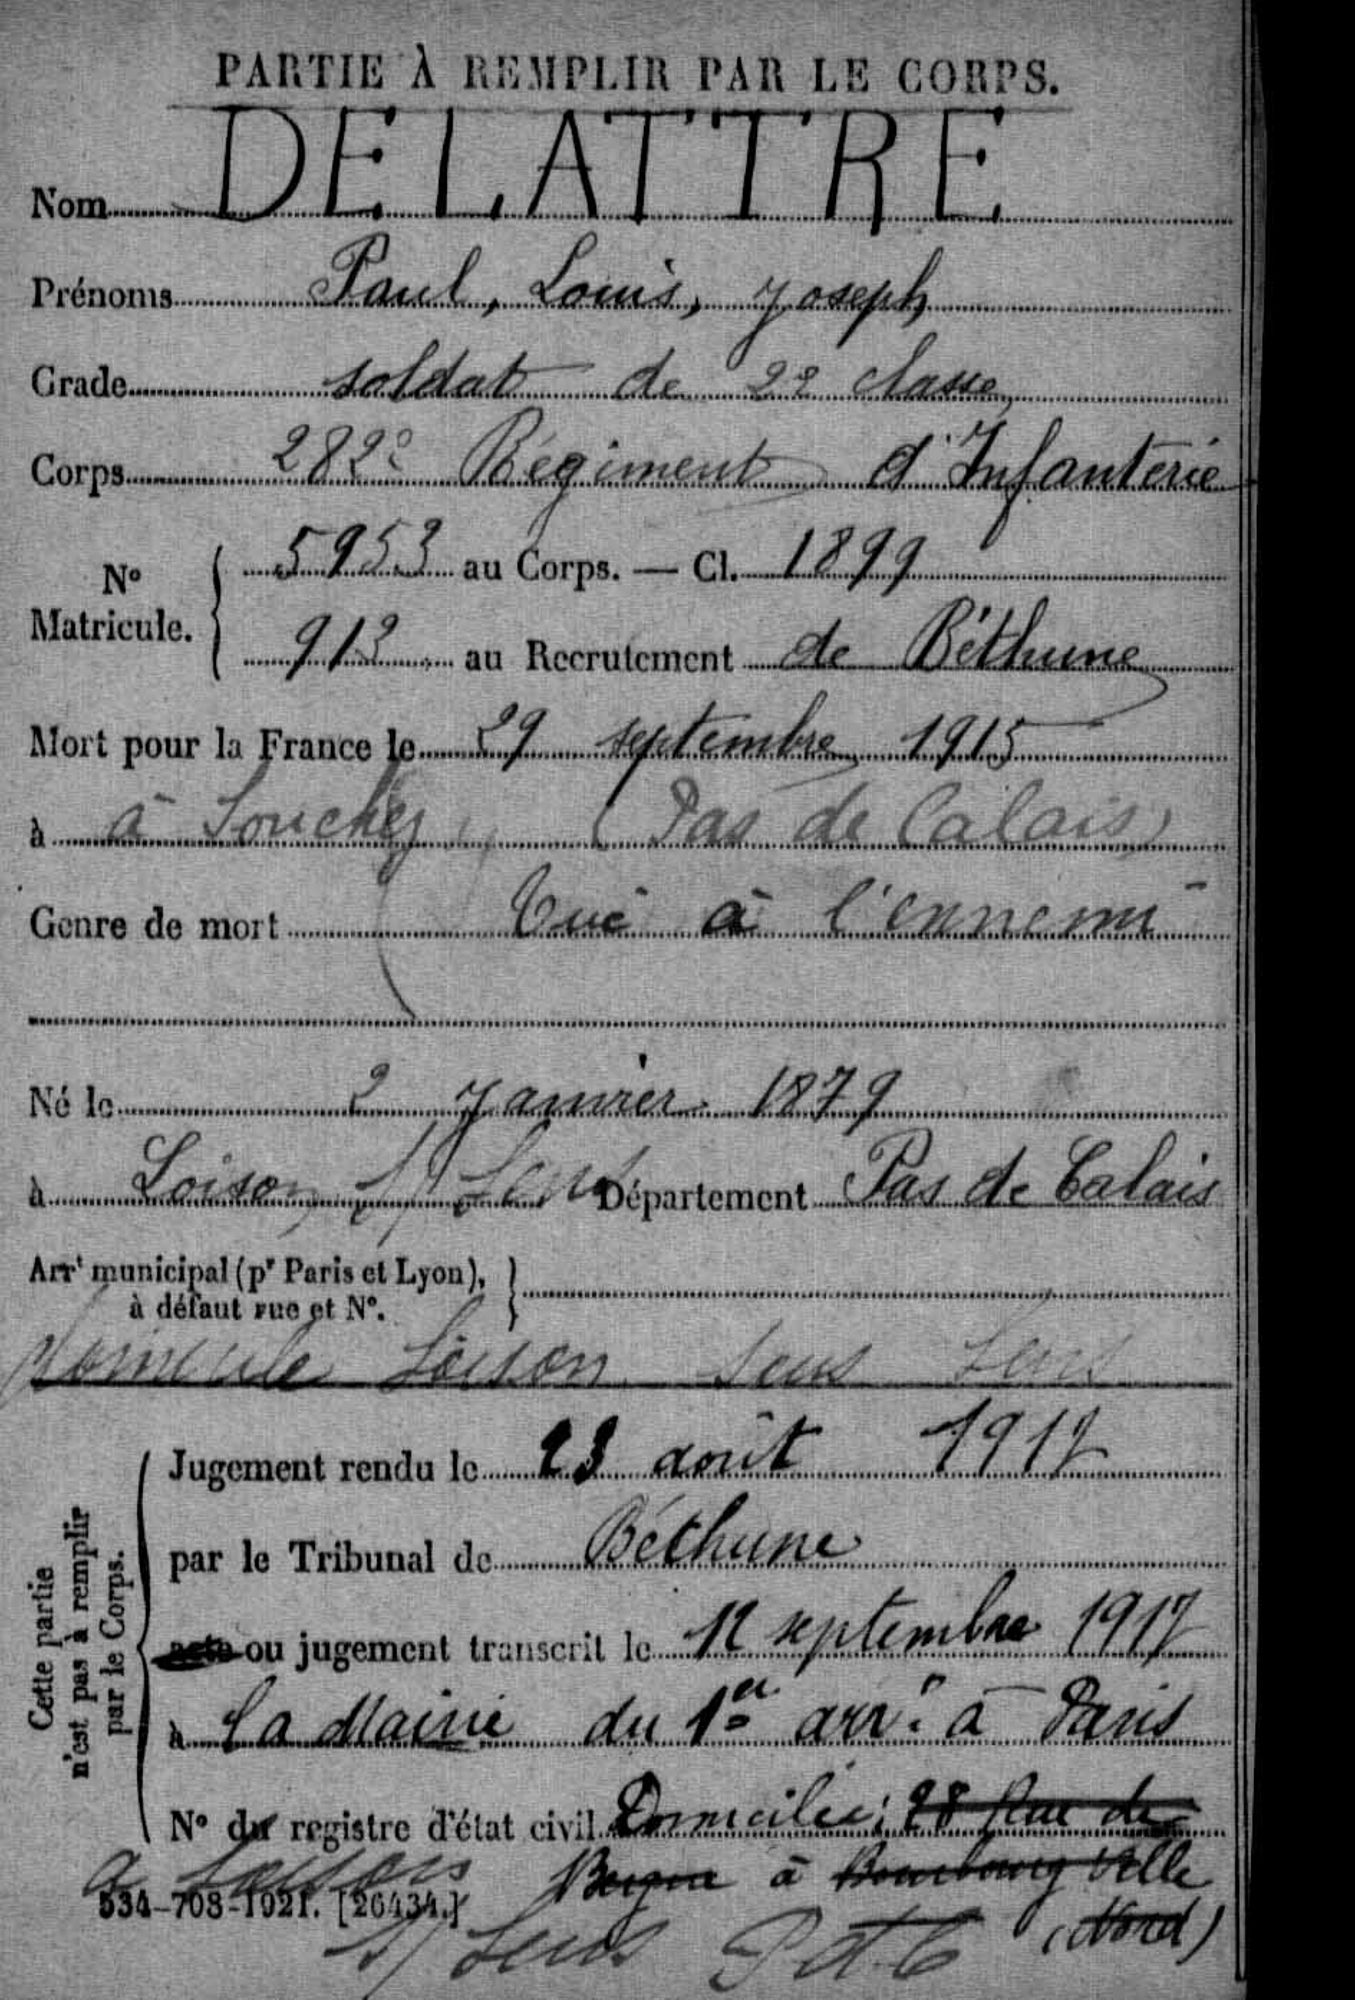 PARTIE À REMPLIR PAR LE CORPS.
Nom DELATTRE
Prénoms Paul, Louis, Joseph
Grade soldat de 2e classe
Corps 282e Régiment d'Infanterie
No Matricule. { 5953 au Corps. — Cl. 1899
913 au Recrutement de Béthune
Mort pour la France le 29 septembre 1915
à à Souchez (Pas de Calais)
Genre de mort Tué à l'ennemi
Né le 2 Janvier 1879
à Loison s/ Lens Département Pas de Calais
Arrt municipal (pr Paris et Lyon), à défaut rue et No. }
Domicile Loison sous Lens
Cette partie n'est pas à remplir par le Corps.
Jugement rendu le 23 août 1917
par le Tribunal de Béthune
acte ou jugement transcrit le 12 septembre 1917
à la Mairie du 1er arrt à Paris
No du registre d'état civil Domicilié: 28 Rue de
Bergue à Bourbourg Ville
(Nord)
à Loison
s/ Lens P d C
534-708-1921. [26434.]